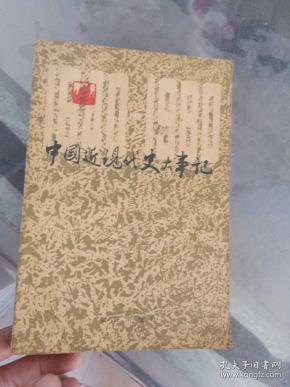 1840-1980
中国近现代史大事记
孔夫子旧书网